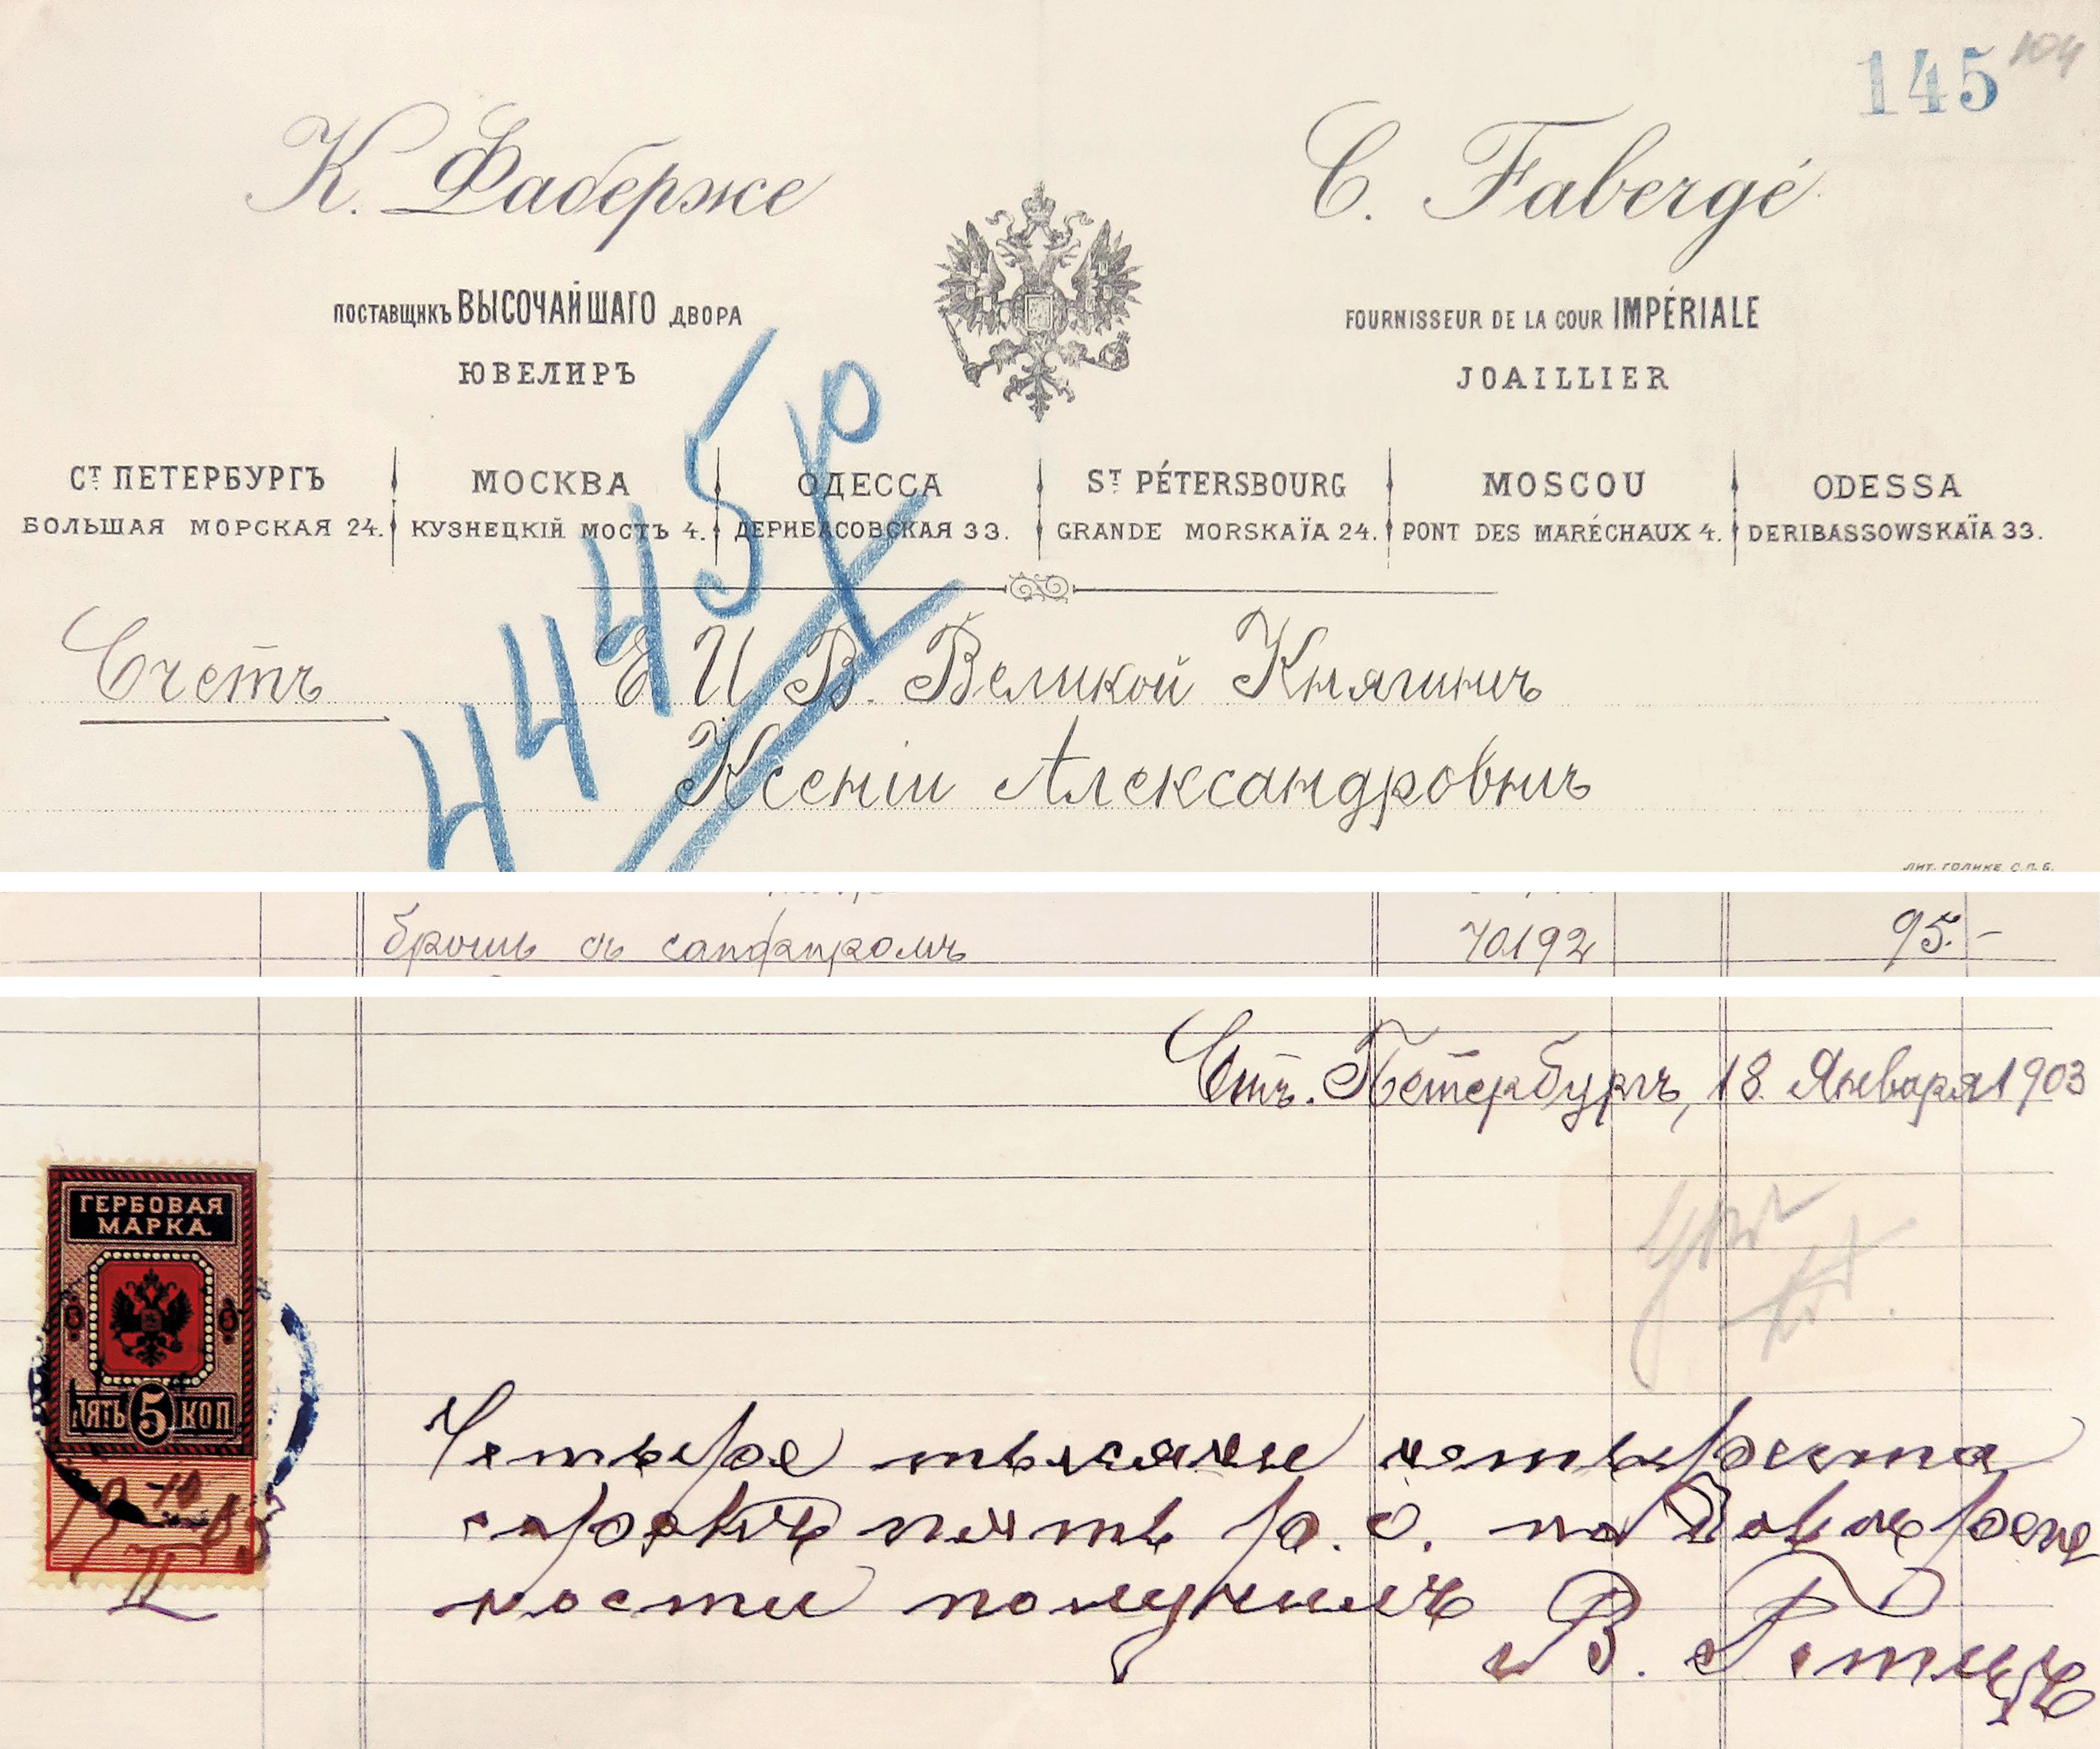 145 104
К. Фаберже
C. Fabergé
ПОСТАВЩИКЪ ВЫСОЧАЙШАГО ДВОРА
ЮВЕЛИРЪ
FOURNISSEUR DE LA COUR IMPÉRIALE
JOAILLIER
Ст ПЕТЕРБУРГЪ МОСКВА ОДЕССА ST PÉTERSBOURG MOSCOU ODESSA
БОЛЬШАЯ МОРСКАЯ 24. КУЗНЕЦКІЙ МОСТЪ 4. ДЕРИБАСОВСКАЯ 33. GRANDE MORSKAÏA 24. PONT DES MARÉCHAUX 4. DERIBASSOWSKAÏA 33.
4445р
Счетъ Е И В. Великой Княгинѣ
Ксеніи Александровнѣ
ЛИТ. ГОЛИКЕ, С.П.Б.
брошь съ сапфиромъ 70192 95.-
Стъ. Петербургъ, 18 Января 1903
ГЕРБОВАЯ
МАРКА.
5 5
ПЯТЬ 5 КОП
Четыре тысячи четыреста
сорокъ пять р. с. по довѣрен
ности получилъ
В. Гетцъ